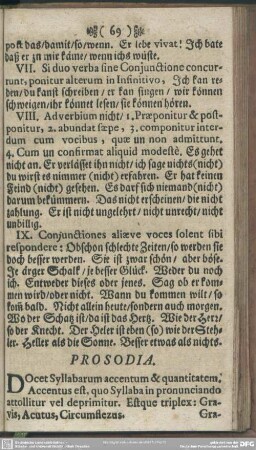 ( 69 )
post das/damit/so/wenn. Er lebe vivat! Ich bate
daß er zu mir käme/wenn ichs wüste.
VII. Si duo verba sine Conjunctione concur-
runt, ponitur alterum in Infinitivo, Ich kan re-
den/du kanst schreiben/er kan singen/wir können
schweigen/ihr könnet lesen/sie können hören.
VIII. Adverbium nicht/1, Præponitur & post-
ponitur, 2. abundat sæpe, 3. componitur inter-
dum cum vocibus, quæ un non admittunt,
4. Cum un confirmat aliquid modestè. Es gehet
nicht an. Er verlässet ihn nicht/ich sage nichts(nicht)
du wirst es nimmer (nicht) erfahren. Er hat keinen
Feind (nicht) gesehen. Es darf sich niemand (nicht)
darum bekümmern. Das nicht erscheinen/die nicht
zahlung. Er ist nicht ungelehrt/nicht unrecht/nicht
unbillig.
IX. Conjunctiones aliæve voces solent sibi
respondere: Obschon schlechte Zeiten/so werden sie
doch besser werden. Sie ist zwar schön/aber böse.
Je ärger Schalk/je besser Glück. Weder du noch
ich. Entweder dieses oder jenes. Sag ob er kom-
men wird/oder nicht. Wann du kommen wilt/so
kom bald. Nicht allein heute/sondern auch morgen.
Wo der Schatz ist/da ist das Hertz. Wie der Herr/
so der Knecht. Der Heler ist eben (so) wie der Steh-
ler. Heller als die Sonne. Besser etwas als nichts.
PROSODIA.
Docet Syllabarum accentum & quantitatem.
Accentus est, quo Syllaba in pronunciando
attollitur vel deprimitur. Estque triplex: Gra-
vis, Acutus, Circumflexus.
Gra-